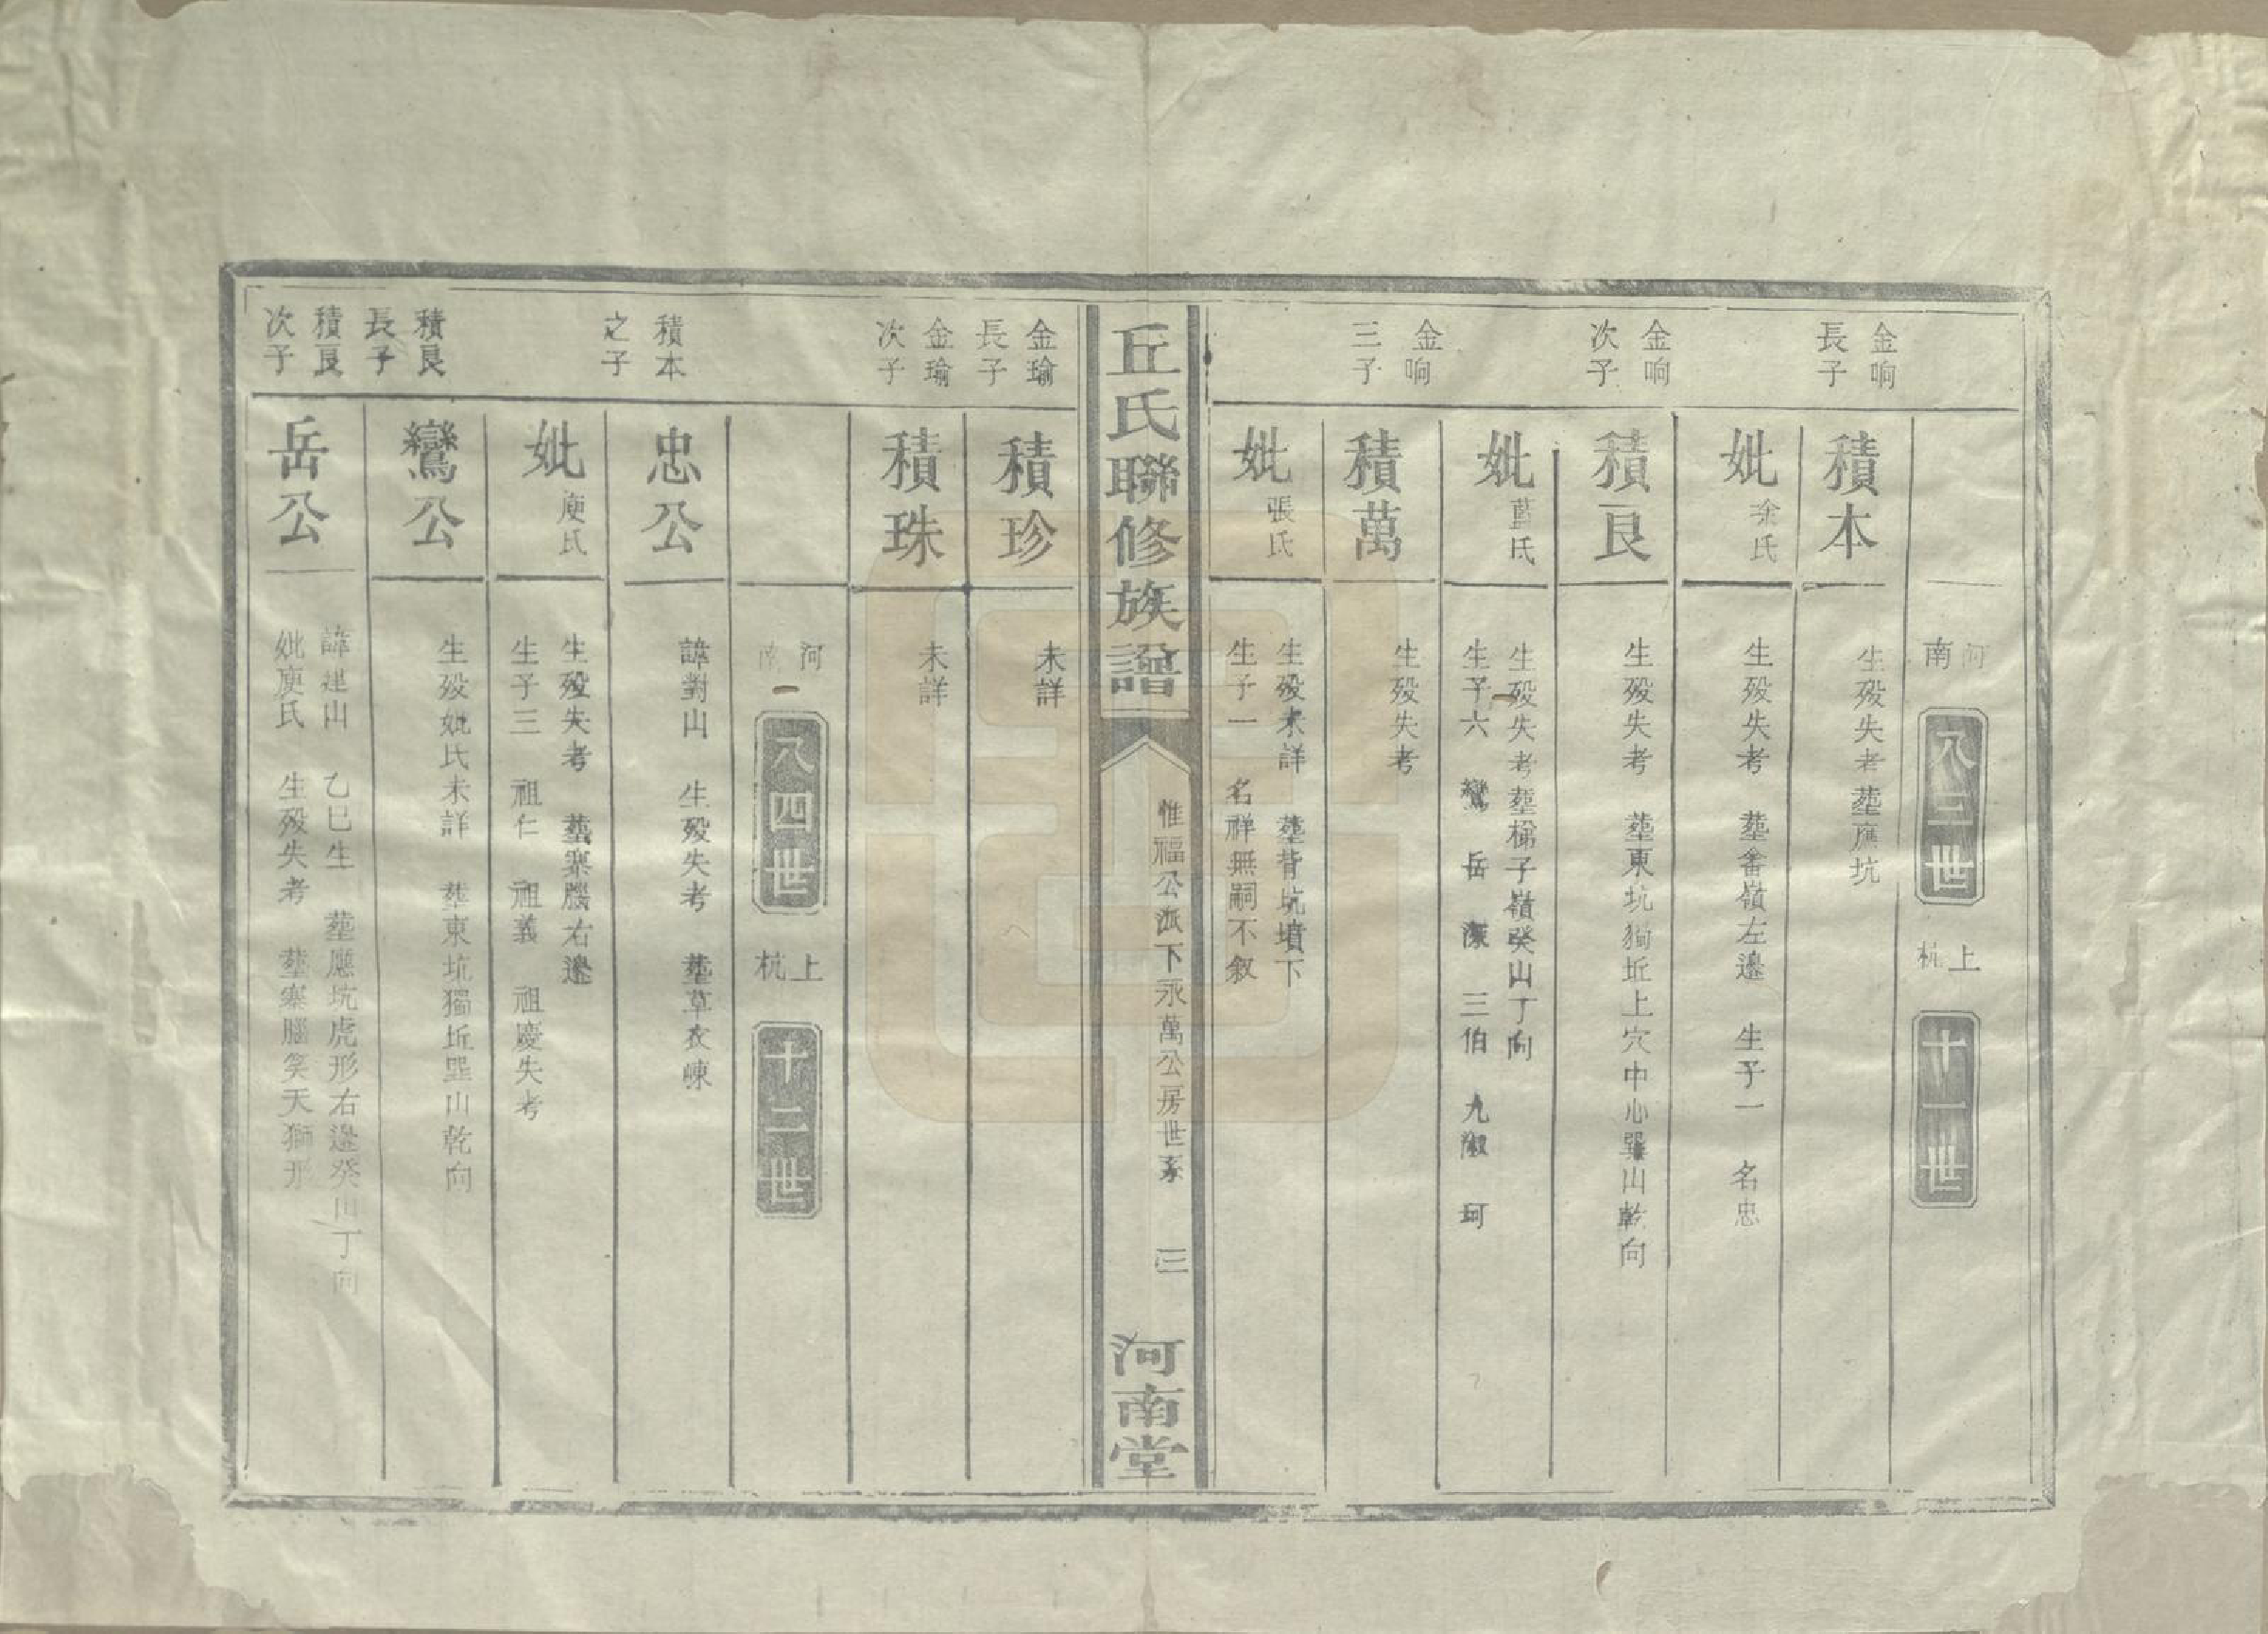 河南 八三世 上杭 十一世
金响長子
積本
生殁失考葬應坑
妣余氏
生殁失考 葬畲嶺左邉 生子一 名忠
金响次子
積良
生殁失考 葬東坑獨坵上穴中心巽山乾向
妣藍氏
生殁失考葬梯子嶺癸山丁向
生子六 鸞 岳 三伯 九 珂
金响三子
積萬
生殁失考
妣張氏
生殁未詳 葬背坑墳下
生子一 名祥無嗣不敘
丘氏聯修族譜
惟福公派下永萬公房世系 三
河南堂
金瑜長子
積珍
未詳
金瑜次子
積珠
未詳
河南 八四世 上杭 十二世
積本之子
忠公
諱對山 生殁失考 葬草衣崠
妣庾氏
生殁失考 葬寨腦右邉
生子三 祖仁 祖義 祖慶失考
積良長子
鸞公
生殁妣氏未詳 葬東坑獨坵巽山乾向
積良次子
岳公
諱建山 乙巳生 葬應坑虎形右邉癸山丁向
妣庾氏 生殁失考 葬寨腦笑天獅形